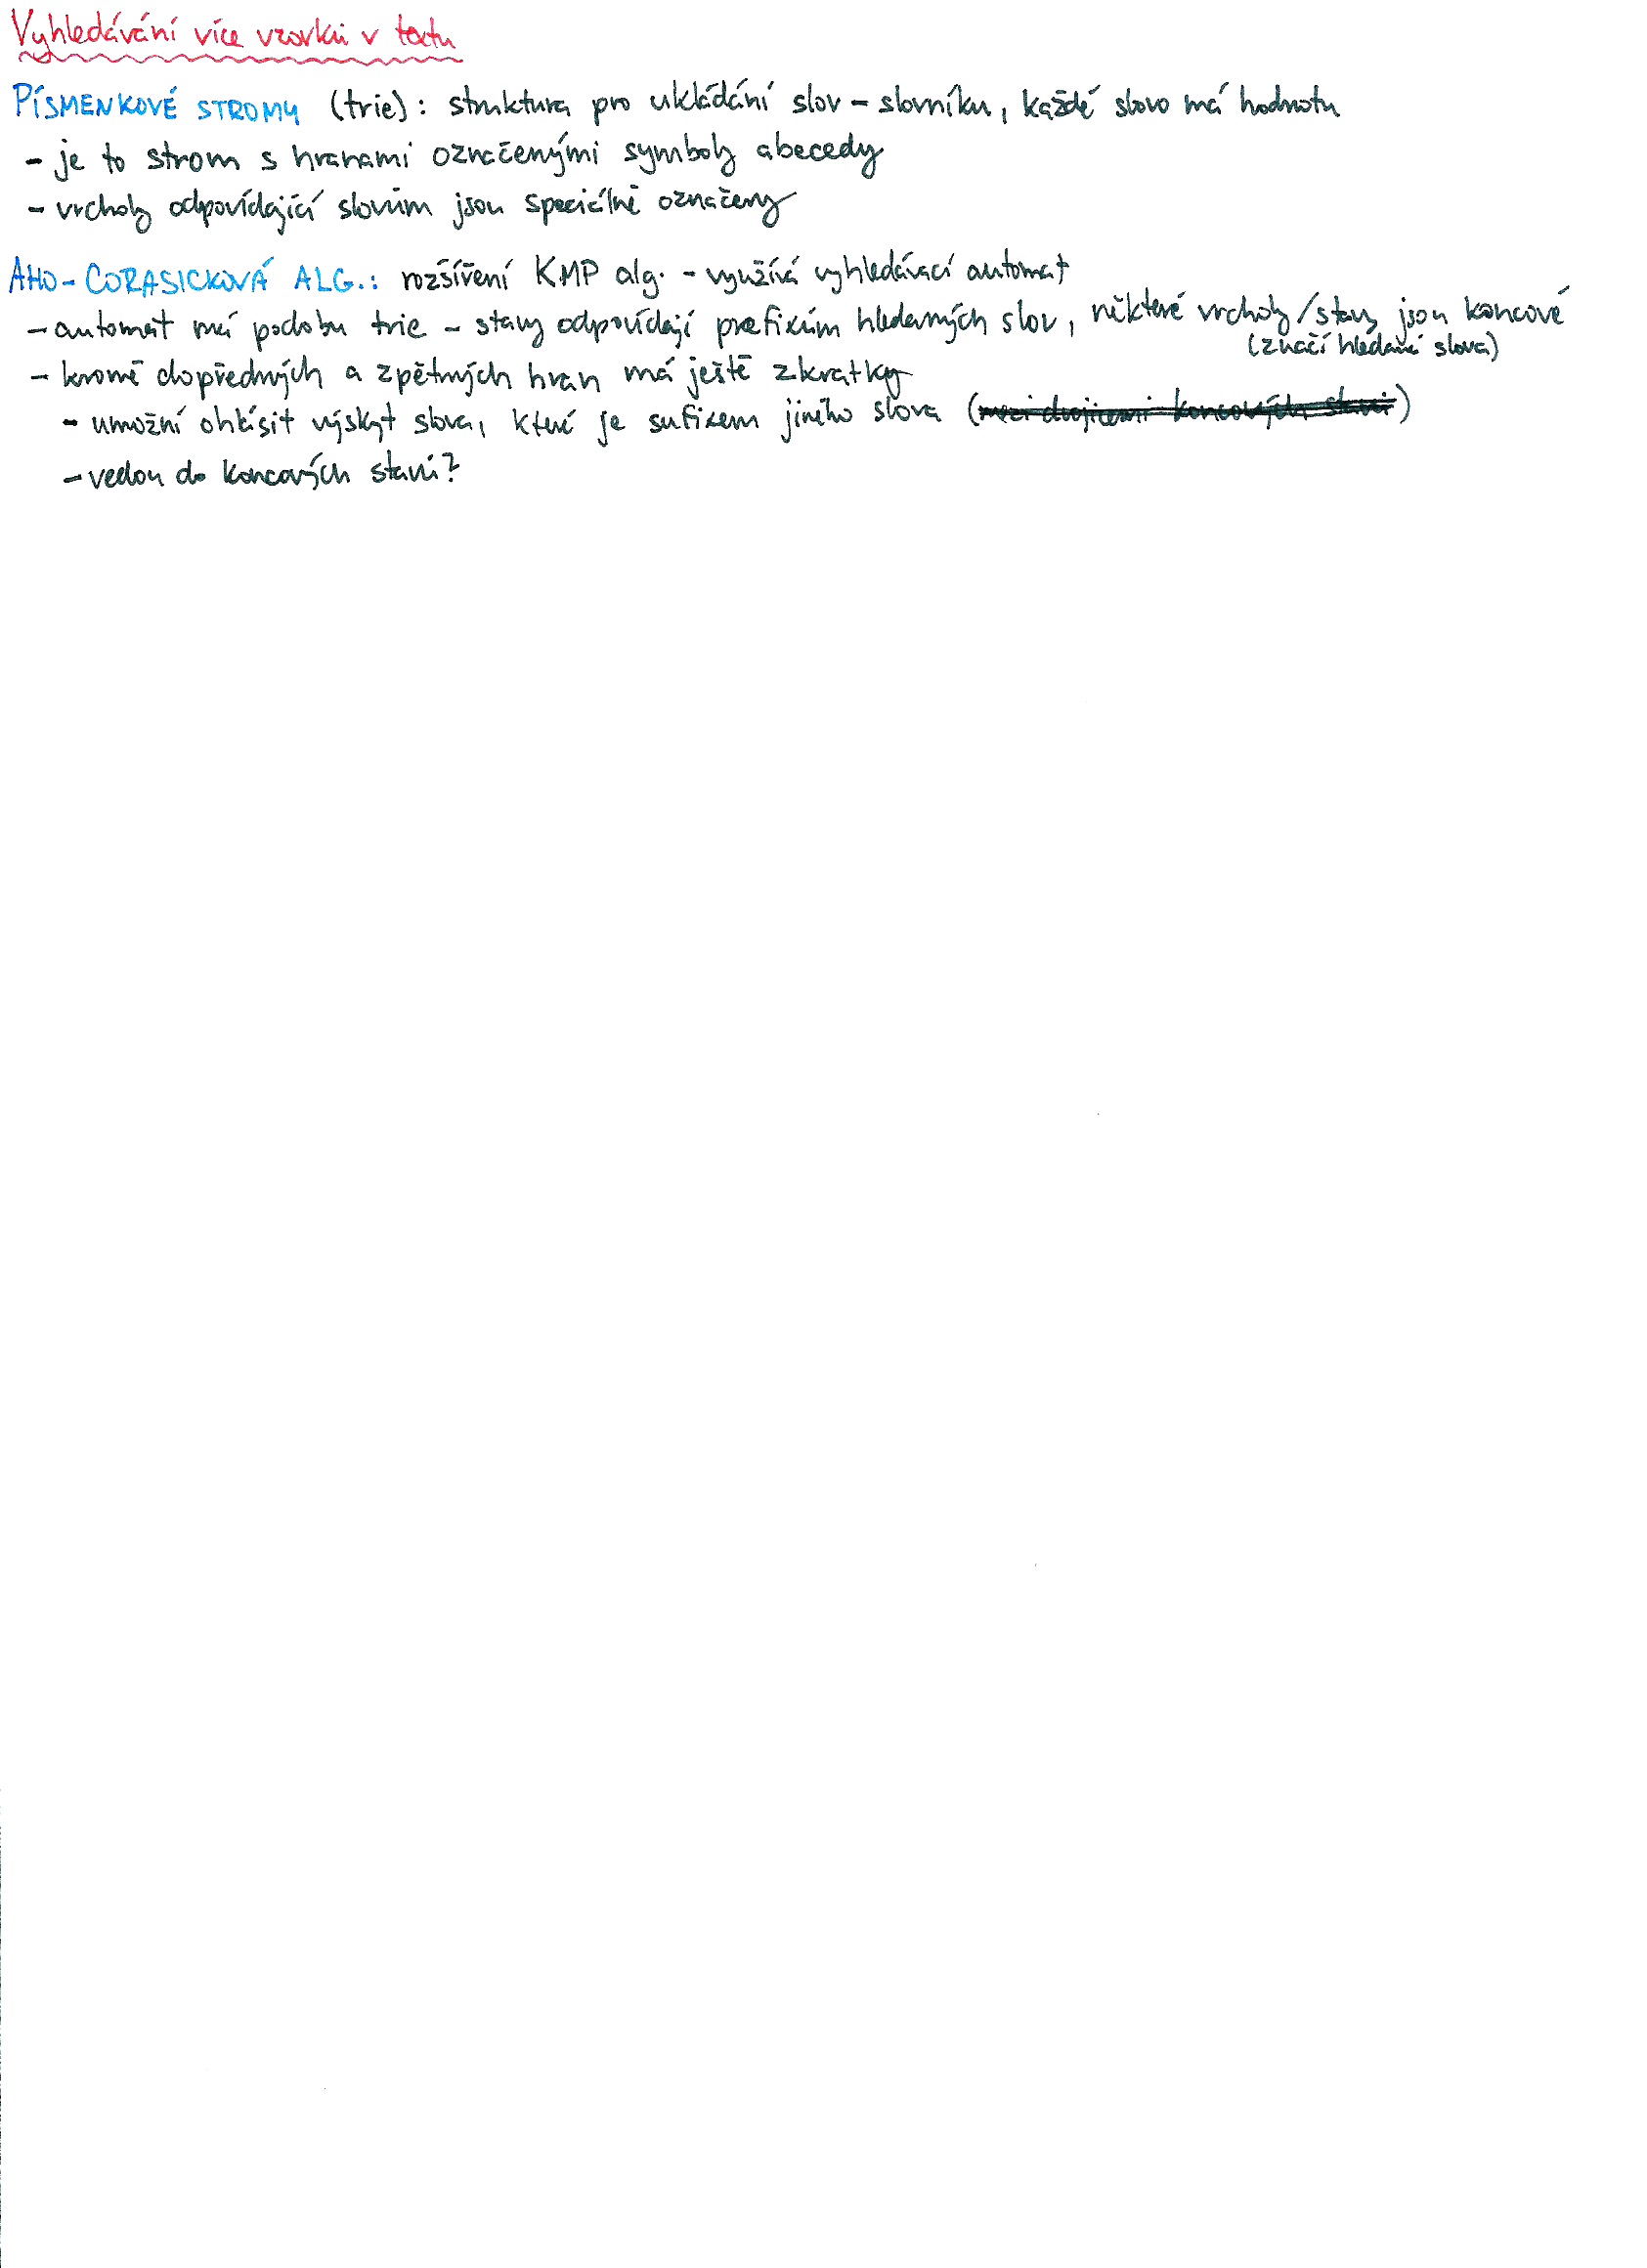 Vyhledávání více vzorků v textu
PÍSMENKOVÉ STROMY (trie): struktura pro ukládání slov – slovníku, každé slovo má hodnotu
– je to strom s hranami označenými symboly abecedy
– vrcholy odpovídající slovům jsou speciálně označeny
AHO-CORASICKOVÁ ALG.: rozšíření KMP alg. – využívá vyhledávací automat
– automat má podobu trie – stavy odpovídají prefixům hledaných slov, některé vrcholy/stavy jsou koncové
(značí hledaná slova)
– kromě dopředných a zpětných hran má ještě zkratky
– umožní ohlásit výskyt slova, které je sufixem jiného slova (mezi dvojicemi koncových stavů)
– vedou do koncových stavů?